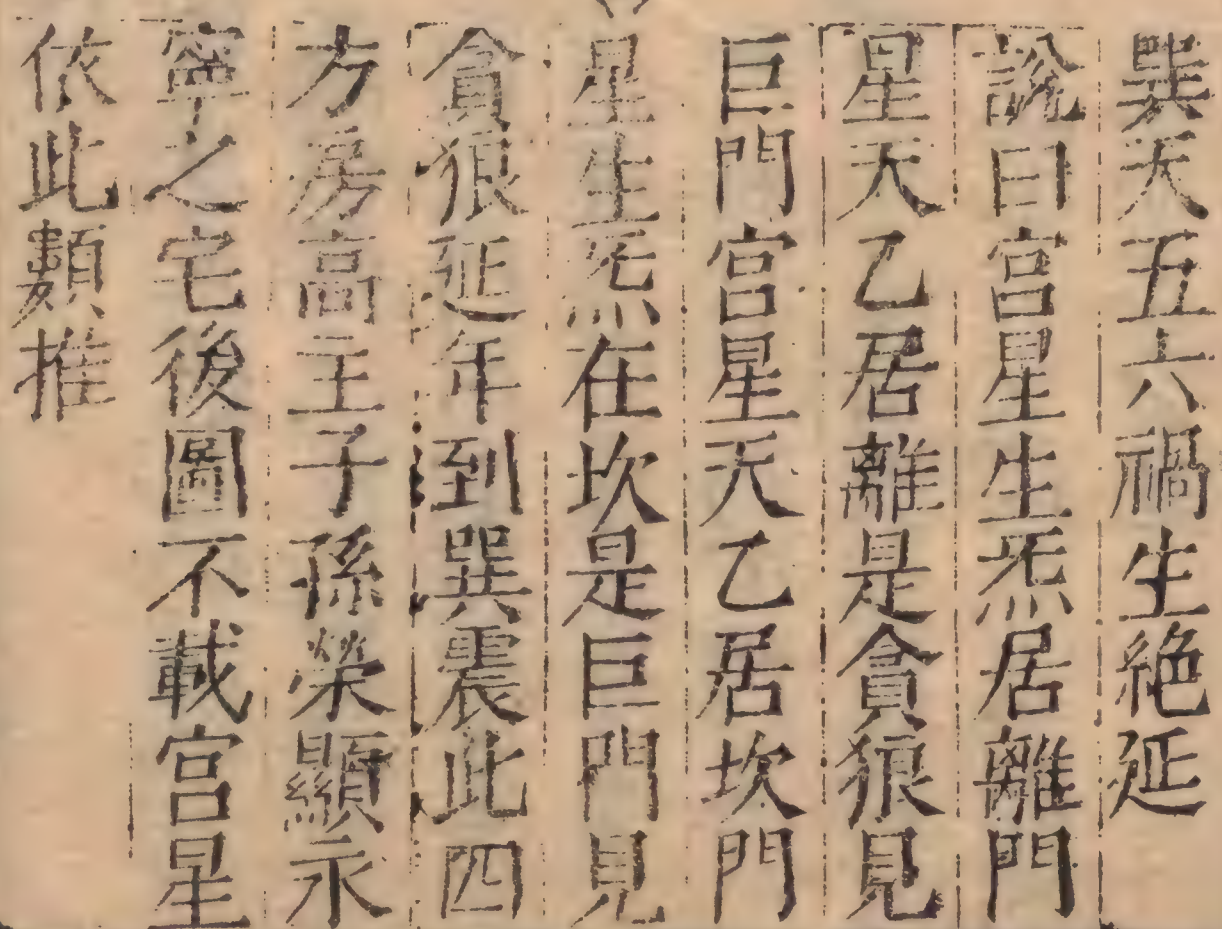 巽天五六禍生絶延
說曰宫星生炁居離門
星天乙居離是貪狼見
巨門宫星天乙居坎門
星生炁在坎是巨門見
貪狼延年到巽震此四
方房高主子孫榮顯永
寧之宅後圖不載宫星
依此類推